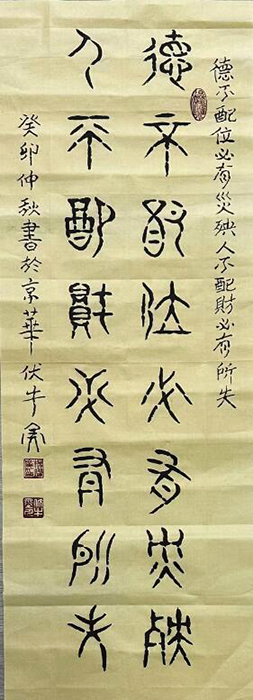 德不配位必有災殃人不配財必有所失
德不配位必有災殃
人不配財必有所失
癸卯仲秋書於京華伏牛